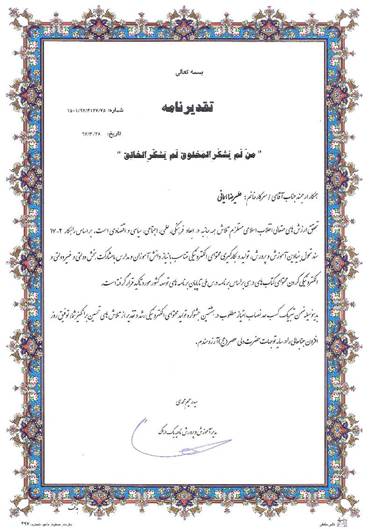 بسمه تعالی
تقدیرنامه
شماره: ۱۵۰۱/۹۲/۳۱۴۷/۷۵
تاریخ: ۹۲/۳/۲۸
" مَن لَم یَشکُر المَخلوق لَم یَشکُر الخالِق "
همکار ارجمند جناب آقای / سرکار خانم : علیرضا امانی
تحقق ارزش های متعالی انقلاب اسلامی مستلزم تلاش همه جانبه در ابعاد فرهنگی، علمی، اجتماعی، سیاسی و اقتصادی است. براساس راهکار ۱۷.۲
سند تحول بنیادین آموزش و پرورش، تولید و به کارگیری محتوای الکترونیکی متناسب با نیاز دانش آموزان و مدارس با مشارکت بخش دولتی و غیردولتی و
الکترونیکی کردن محتوای کتاب های درسی براساس برنامه درس ملی تا پایان برنامه های توسعه کشور مورد تأکید قرار گرفته است.
بدینوسیله ضمن تبریک کسب حد نصاب امتیاز مطلوب در هشتمین جشنواره تولید محتوای الکترونیکی رشد و تقدیر از تلاش های تحسین برانگیز شما، توفیق روز
افزون جنابعالی را در سایه توجهات حضرت ولی عصر (عج) آرزومندم.
مدیر آموزش و پرورش ناحیه یک